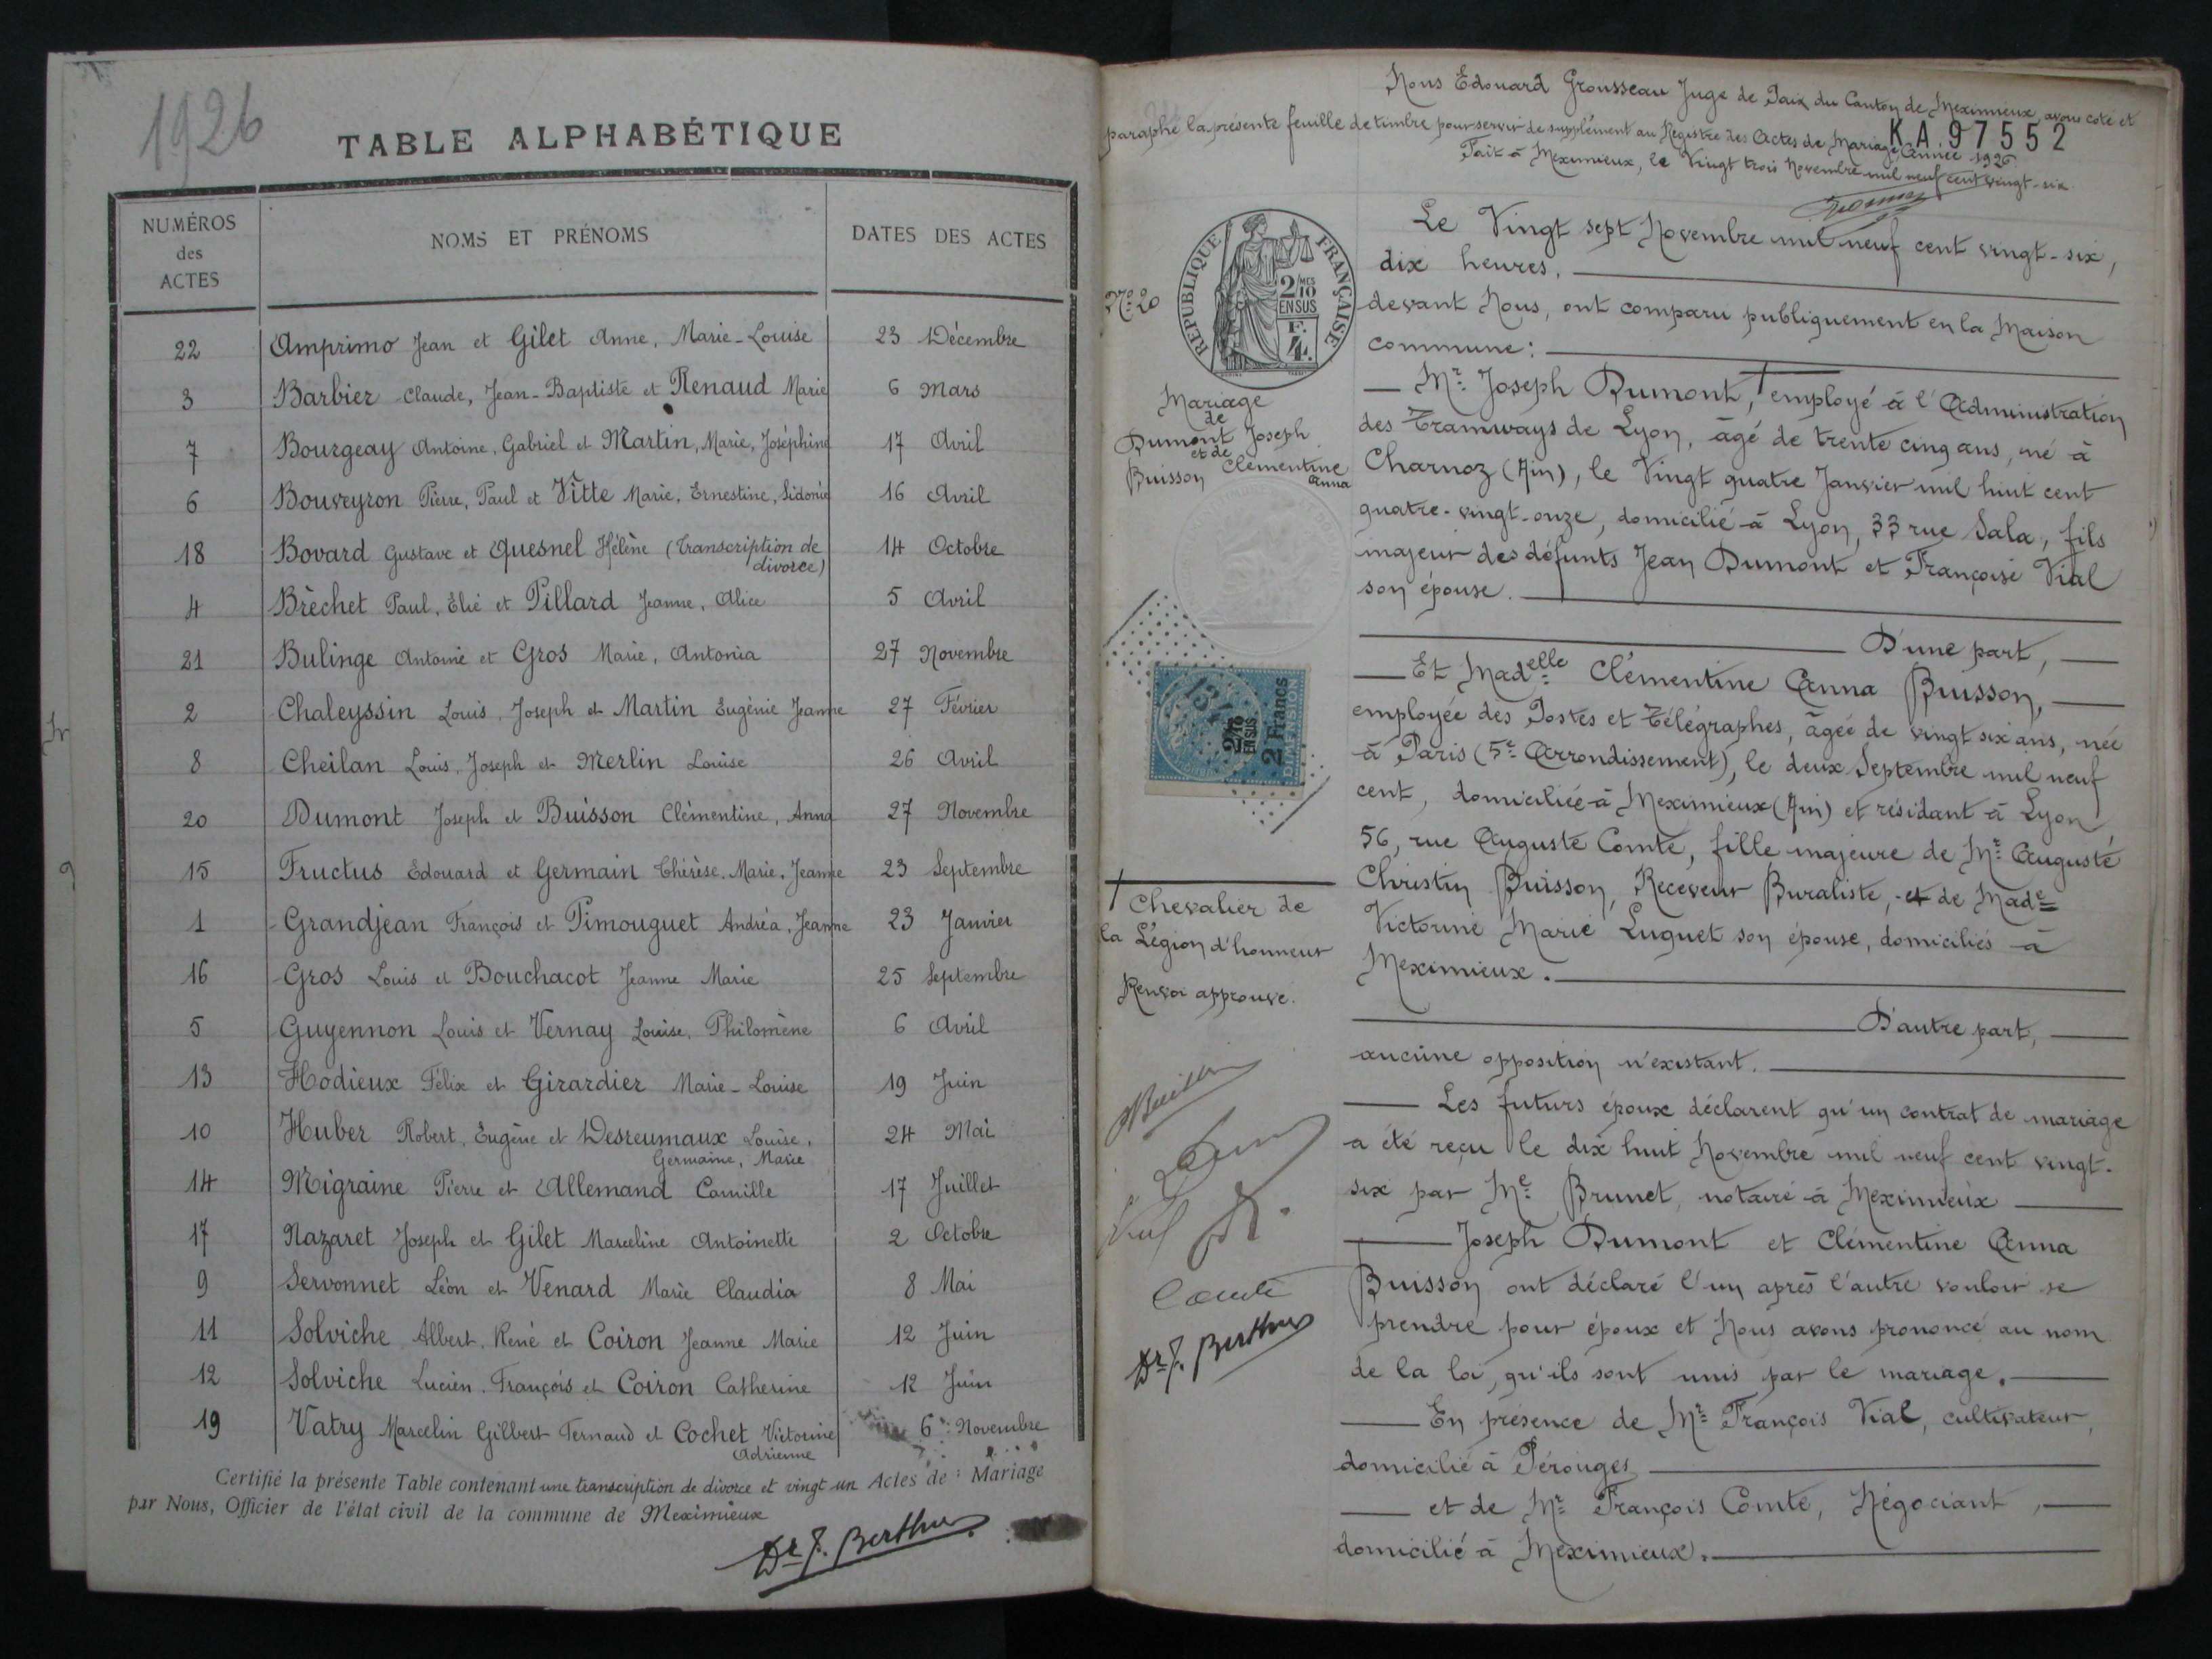 1926
TABLE ALPHABÉTIQUE
NUMÉROS des ACTES
NOMS ET PRÉNOMS
DATES DES ACTES
22 Amprimo Jean et Gilet Anne, Marie-Louise 23 Décembre
3 Barbier Claude, Jean-Baptiste et Renaud Marie 6 Mars
7 Bourgeay Antoine, Gabriel et Martin, Marie, Joséphine 17 Avril
6 Bouveyron Pierre, Paul et Vitte Marie, Ernestine, Sidonie 16 Avril
18 Bovard Gustave et Quesnel Hélène (Transcription de divorce) 14 Octobre
4 Brèchet Paul, Élie et Pillard Jeanne, Alice 5 Avril
21 Bulinge Antoine et Gros Marie, Antonia 27 Novembre
2 Chaleyssin Louis, Joseph et Martin Eugénie Jeanne 27 Février
8 Cheilan Louis, Joseph et Merlin Louise 26 Avril
20 Dumont Joseph et Buisson Clémentine, Anna 27 Novembre
15 Fructus Edouard et Germain Thérèse, Marie, Jeanne 23 Septembre
1 Grandjean François et Pimouguet Andréa, Jeanne 23 Janvier
16 Gros Louis et Bouchacot Jeanne Marie 25 Septembre
5 Guyennon Louis et Vernay Louise, Philomène 6 Avril
13 Hodieux Félix et Girardier Marie-Louise 19 Juin
10 Huber Robert, Eugène et Desreumaux Louise, Germaine, Marie 24 Mai
14 Migraine Pierre et Allemand Camille 17 Juillet
17 Nazaret Joseph et Gilet Marceline Antoinette 2 Octobre
9 Servonnet Léon et Venard Marie Claudia 8 Mai
11 Solviche Albert, René et Coiron Jeanne Marie 12 Juin
12 Solviche Lucien, François et Coiron Catherine 12 Juin
19 Vatry Marcelin Gilbert Fernand et Cochet Victorine Adrienne 6 Novembre
Certifié la présente Table contenant une transcription de divorce et vingt un Actes de : Mariage
par Nous, Officier de l'état civil de la commune de Meximieux
Dr J. Berthier
Nous Edouard Grousseau Juge de Paix du Canton de Meximieux avons coté et
paraphé la présente feuille de timbre pour servir de supplément au Registre des Actes de Mariage, Année 1926
K.A. 97552
Fait à Meximieux, le Vingt trois Novembre mil neuf cent vingt-six
RÉPUBLIQUE FRANÇAISE
2/10 MES
EN SUS
F.
4.
N° 20
Mariage
de
Dumont Joseph
et de
Buisson Clémentine
Anna
2/10
EN SUS
2 Francs
DIMENSION
Le Vingt sept Novembre mil neuf cent vingt-six,
dix heures.
devant Nous, ont comparu publiquement en la Maison
commune:
Mr Joseph Dumont, † employé à l'Administration
des Tramways de Lyon, âgé de trente cinq ans, né à
Charnoz (Ain), le Vingt quatre Janvier mil huit cent
quatre-vingt-onze, domicilié à Lyon, 33 rue Sala, fils
majeur des défunts Jean Dumont et Françoise Vial
son épouse.
D'une part,
Et Madelle Clémentine Anna Buisson,
employée des Postes et Télégraphes, âgée de vingt six ans, née
à Paris (5e Arrondissement), le deux Septembre mil neuf
cent, domiciliée à Meximieux (Ain) et résidant à Lyon,
56, rue Auguste Comte, fille majeure de Mr Auguste
Christin Buisson, Receveur Buraliste, et de Made
Victorine Marie Luguet son épouse, domiciliés à
Meximieux.
D'autre part,
aucune opposition n'existant.
Les futurs époux déclarent qu'un contrat de mariage
a été reçu le dix huit Novembre mil neuf cent vingt-
six par Me Brunet, notaire à Meximieux
Joseph Dumont et Clémentine Anna
Buisson ont déclaré l'un après l'autre vouloir se
prendre pour époux et Nous avons prononcé au nom
de la loi, qu'ils sont unis par le mariage.
En présence de Mr François Vial, cultivateur,
domicilié à Pérouges
et de Mr François Comte, Négociant,
domicilié à Meximieux.
† Chevalier de
la Légion d'honneur
Renvoi approuvé.
ABuisson
Vial
Comte
Dr J. Berthier